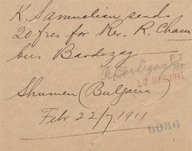 K. Samuelian sends
20 frcs for Rev. R. Cham
bers Bardezag
Bardizag
Shumen (Bulgaria)
Febr 22/7 1911
6036